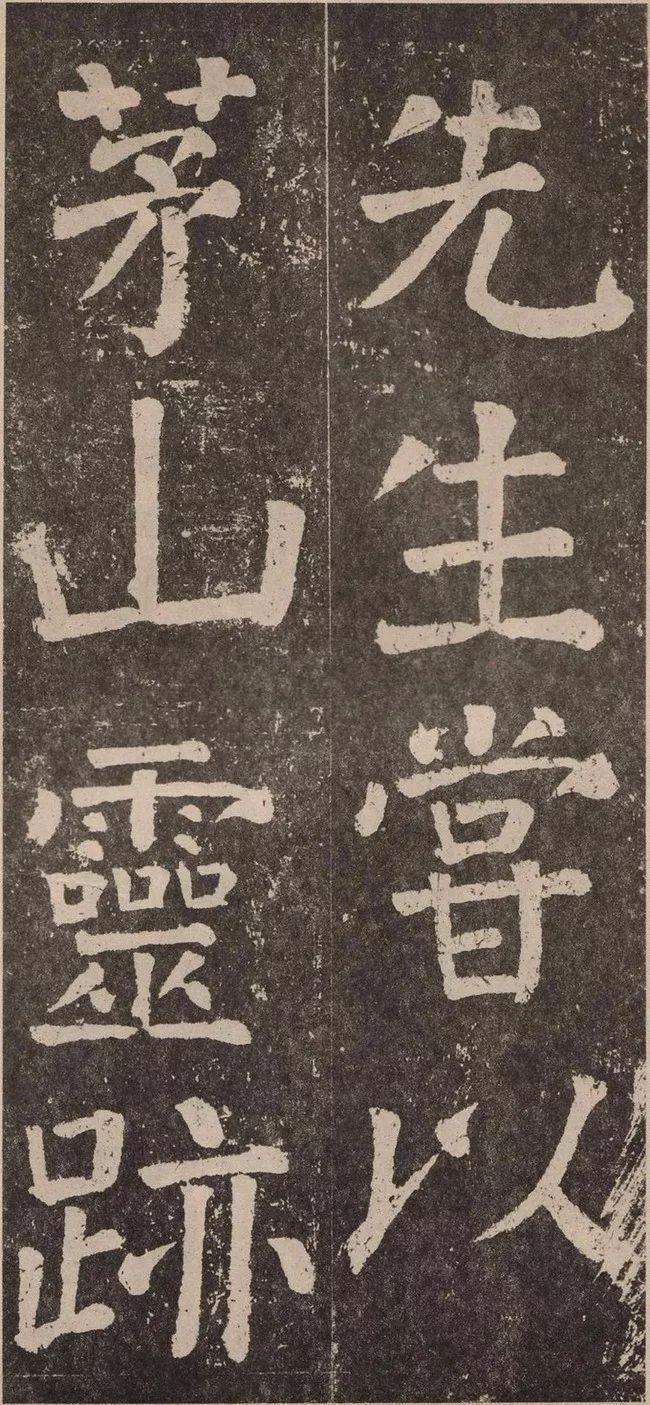 先生嘗以
茅山靈跡